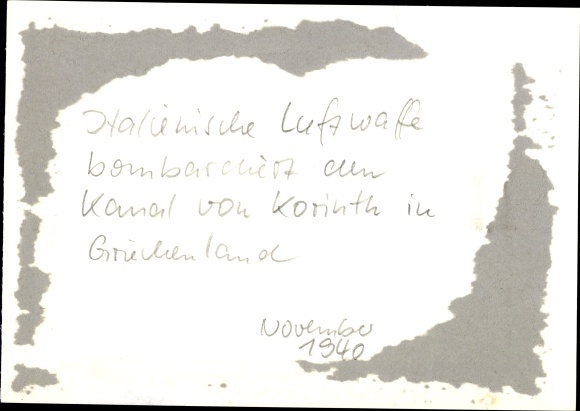 Italienische Luftwaffe
bombardiert den
Kanal von Korinth in
Griechenland
November
1940